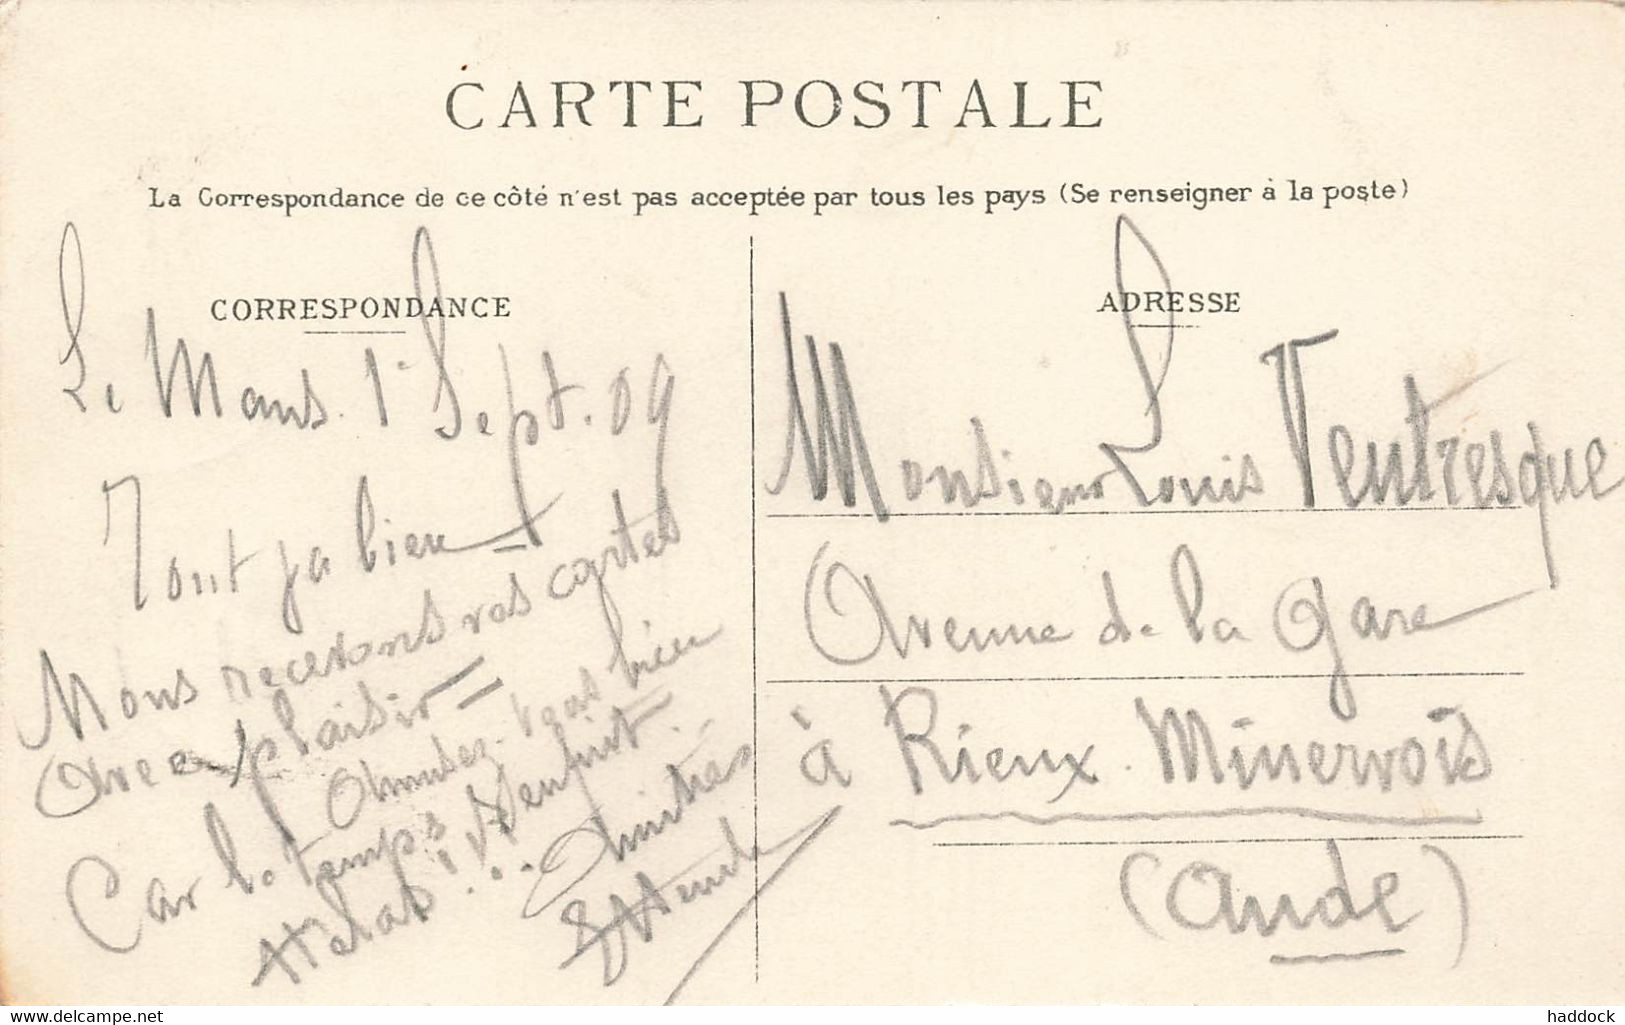 CARTE POSTALE
La Correspondance de ce côté n'est pas acceptée par tous les pays (Se renseigner à la poste)
CORRESPONDANCE
Le Mans. 1r Sept. 09
Tout va bien =
Nous recevons vos cartes
avec plaisir =
Amusez-vous bien
Car le temps s'enfuit.
Hélas!...
Amitiés
ADRESSE
Monsieur Louis Ventresque
Avenue de la Gare
à Rieux Minervois
(Aude)
www.delcampe.net
haddock